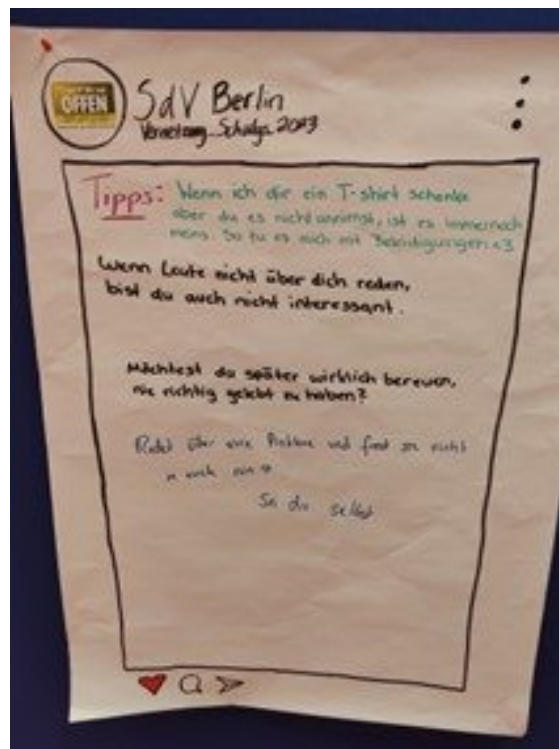 OFFEN
SdV Berlin
Vernetzung
Tipps: Wenn ich dir ein T-shirt schenke
aber du es nicht annimst, ist es immernoch
meins. So tu es auch mit Beleidigungen <3
Wenn Leute nicht über dich reden,
bist du auch nicht interessant.
Möchtest du später wirklich bereuen,
nie richtig gelebt zu haben?
Redet über eure Probleme und
Sei du selbst